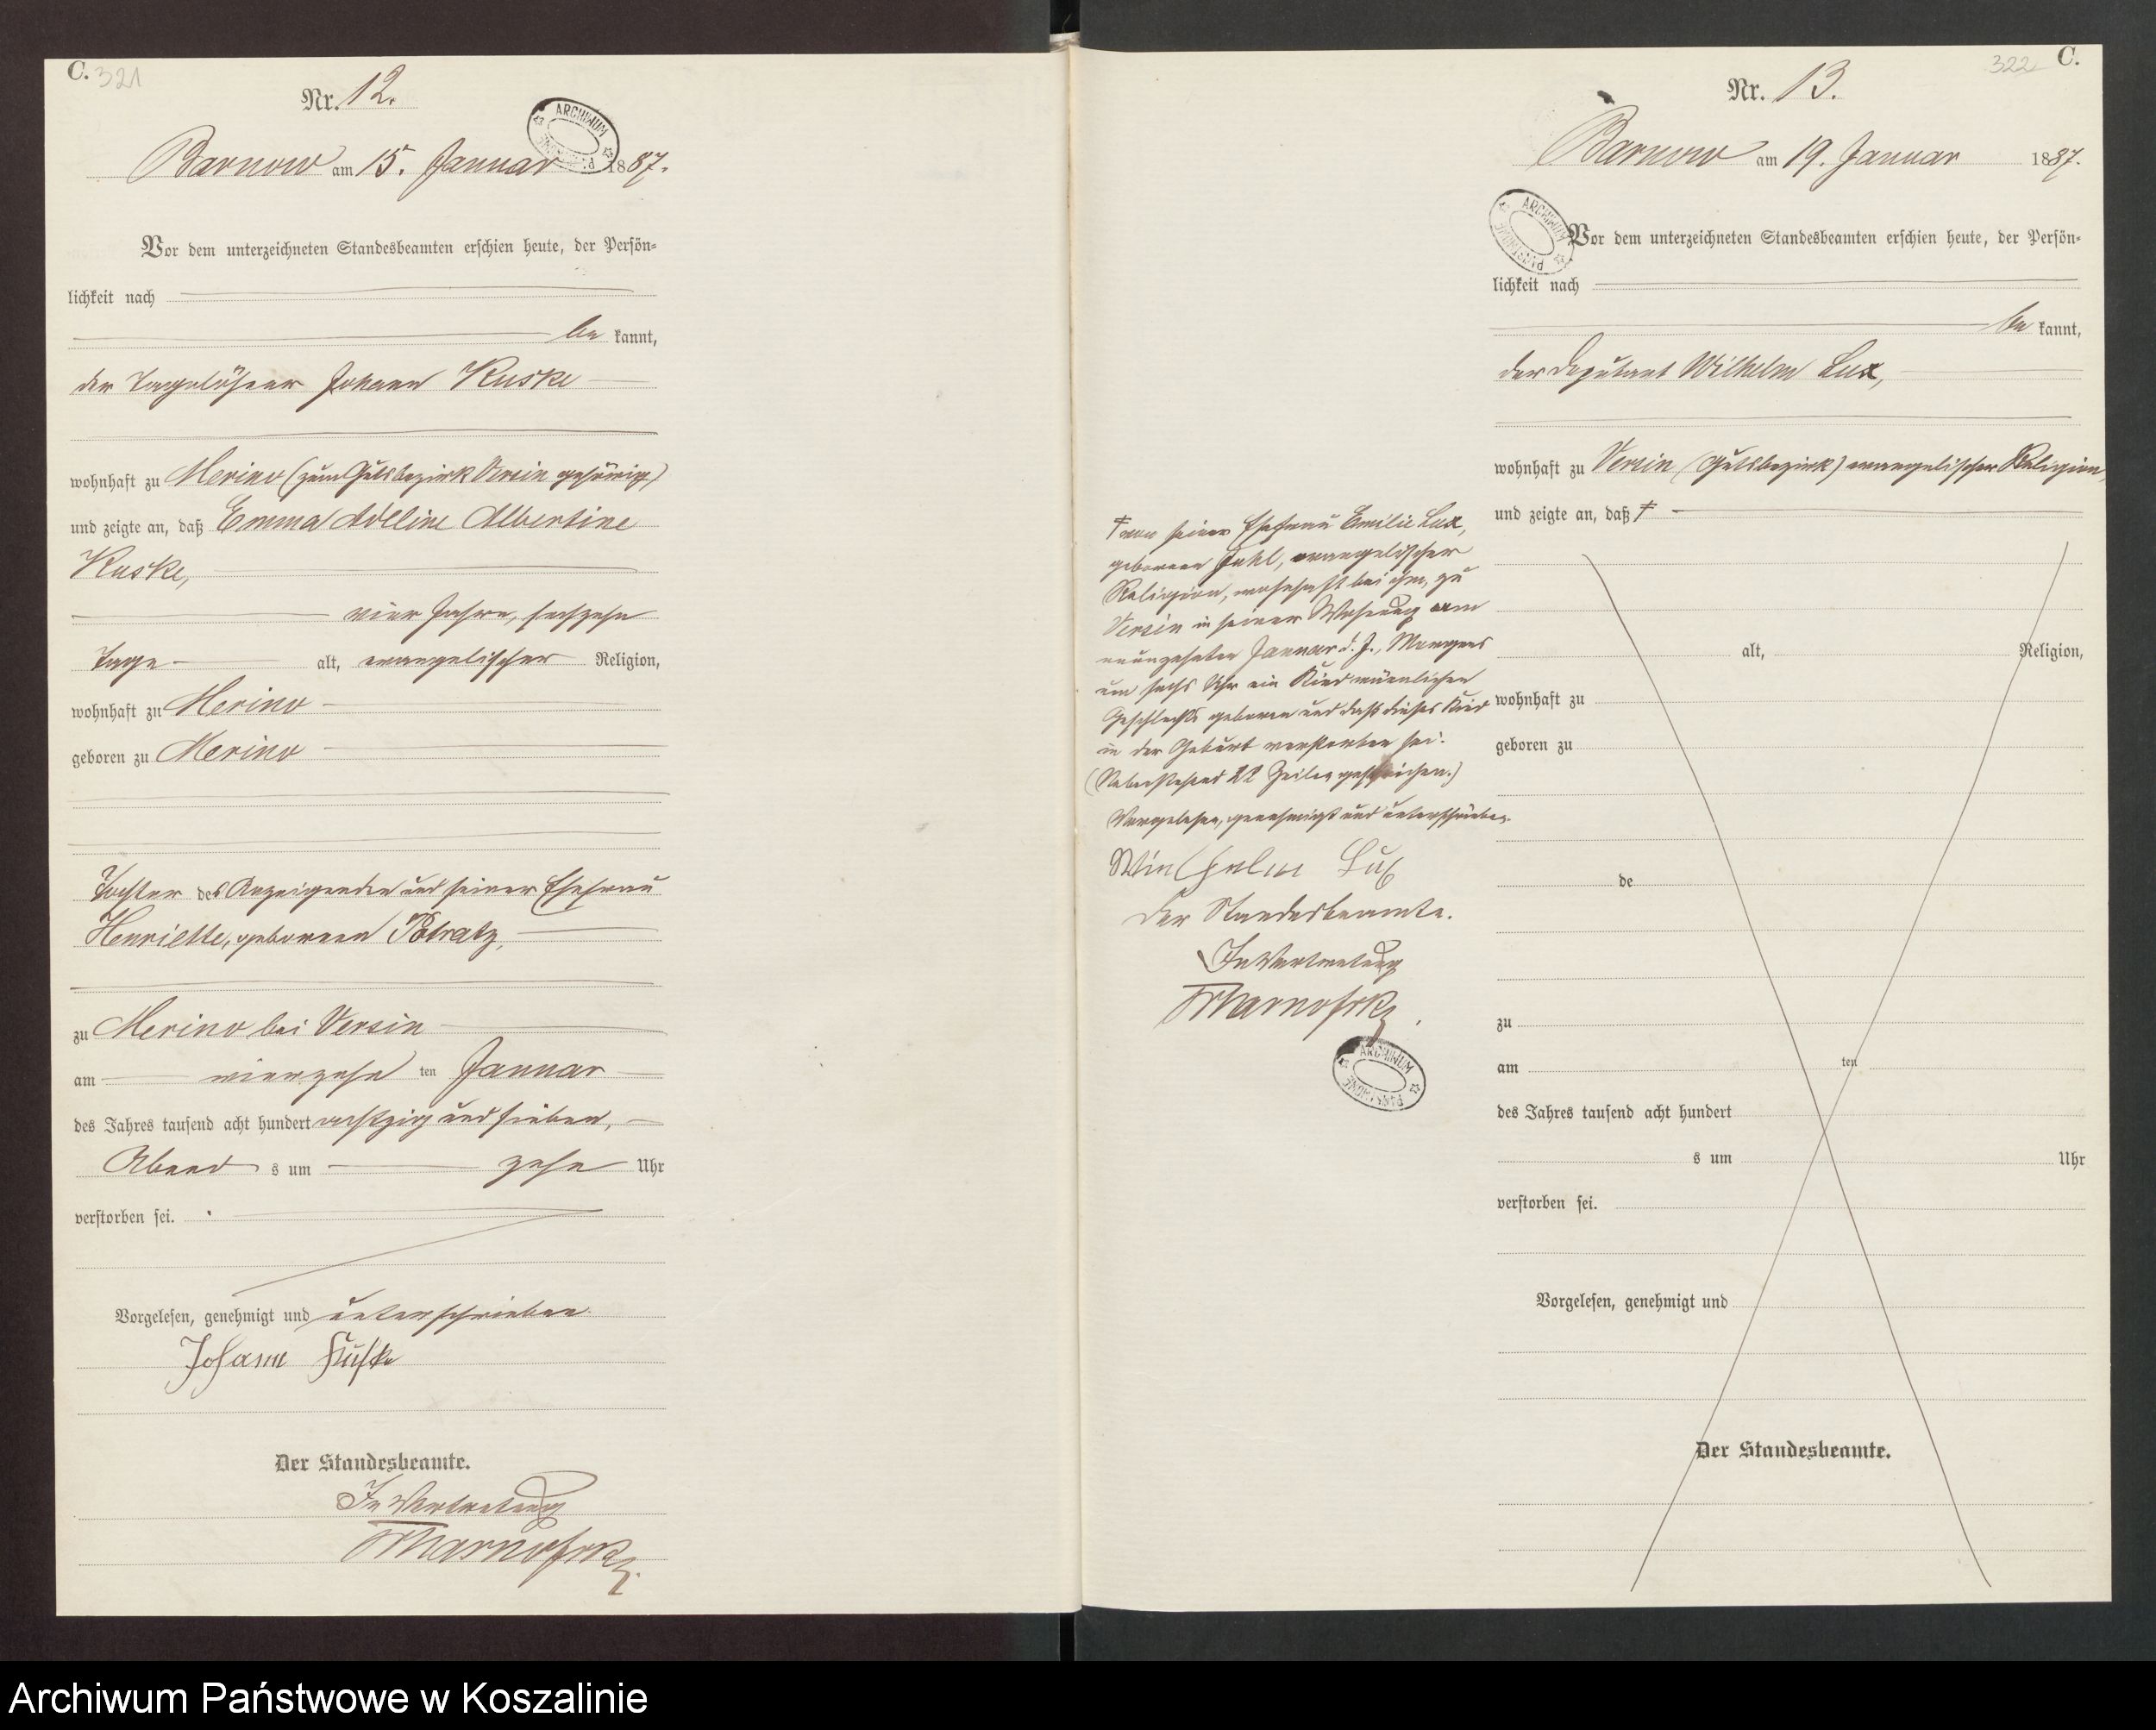 C. 321
Nr. 12.
ARCHIWUM
Barnow am 15. Januar 1887.
Vor dem unterzeichneten Standesbeamten erschien heute, der Persön-
lichkeit nach
be kannt,
der Tagelöhner Johann Kuske
wohnhaft zu Merino (zum Gutsbezirk Versin gehörig)
und zeigte an, daß Emma Adeline Albertine
Kuske,
vier Jahre, sechszehn
Tage alt, evangelischer Religion,
wohnhaft zu Merino
geboren zu Merino
Tochter des Anzeigenden und seiner Ehefrau
Henriette, geborenen Potratz,
zu Merino bei Versin
am vierzehn ten Januar
des Jahres tausend acht hundert achtzig und sieben,
Abend s um zehn Uhr
verstorben sei.
Vorgelesen, genehmigt und unterschrieben.
Johann Kuske
Der Standesbeamte.
In Vertretung
322 C.
Nr. 13.
Barnow am 19. Januar 1887.
ARCHIWUM PAŃSTWOWE
Vor dem unterzeichneten Standesbeamten erschien heute, der Persön-
lichkeit nach
be kannt,
der Deputant Wilhelm Lux,
wohnhaft zu Versin (Gutsbezirk) evangelischer Religion,
und zeigte an, daß †
† von seiner Ehefrau Emilie Lux,
geborenen Juhl, evangelischer
Religion, wohnhaft bei ihm, zu
Versin in seiner Wohnung am
neunzehnten Januar d. J., Morgens
um sechs Uhr ein Kind männlichen
Geschlechts geboren und daß dieses Kind
in der Geburt verstorben sei.
(Nebenstehend 22 Zeilen gestrichen.)
Vorgelesen, genehmigt und unterschrieben.
Wilhelm Lux
Der Standesbeamte.
In Vertretung
ARCHIWUM PAŃSTWOWE
alt, Religion,
wohnhaft zu
geboren zu
de
zu
am ten
des Jahres tausend acht hundert
s um Uhr
verstorben sei.
Vorgelesen, genehmigt und
Der Standesbeamte.
Archiwum Państwowe w Koszalinie